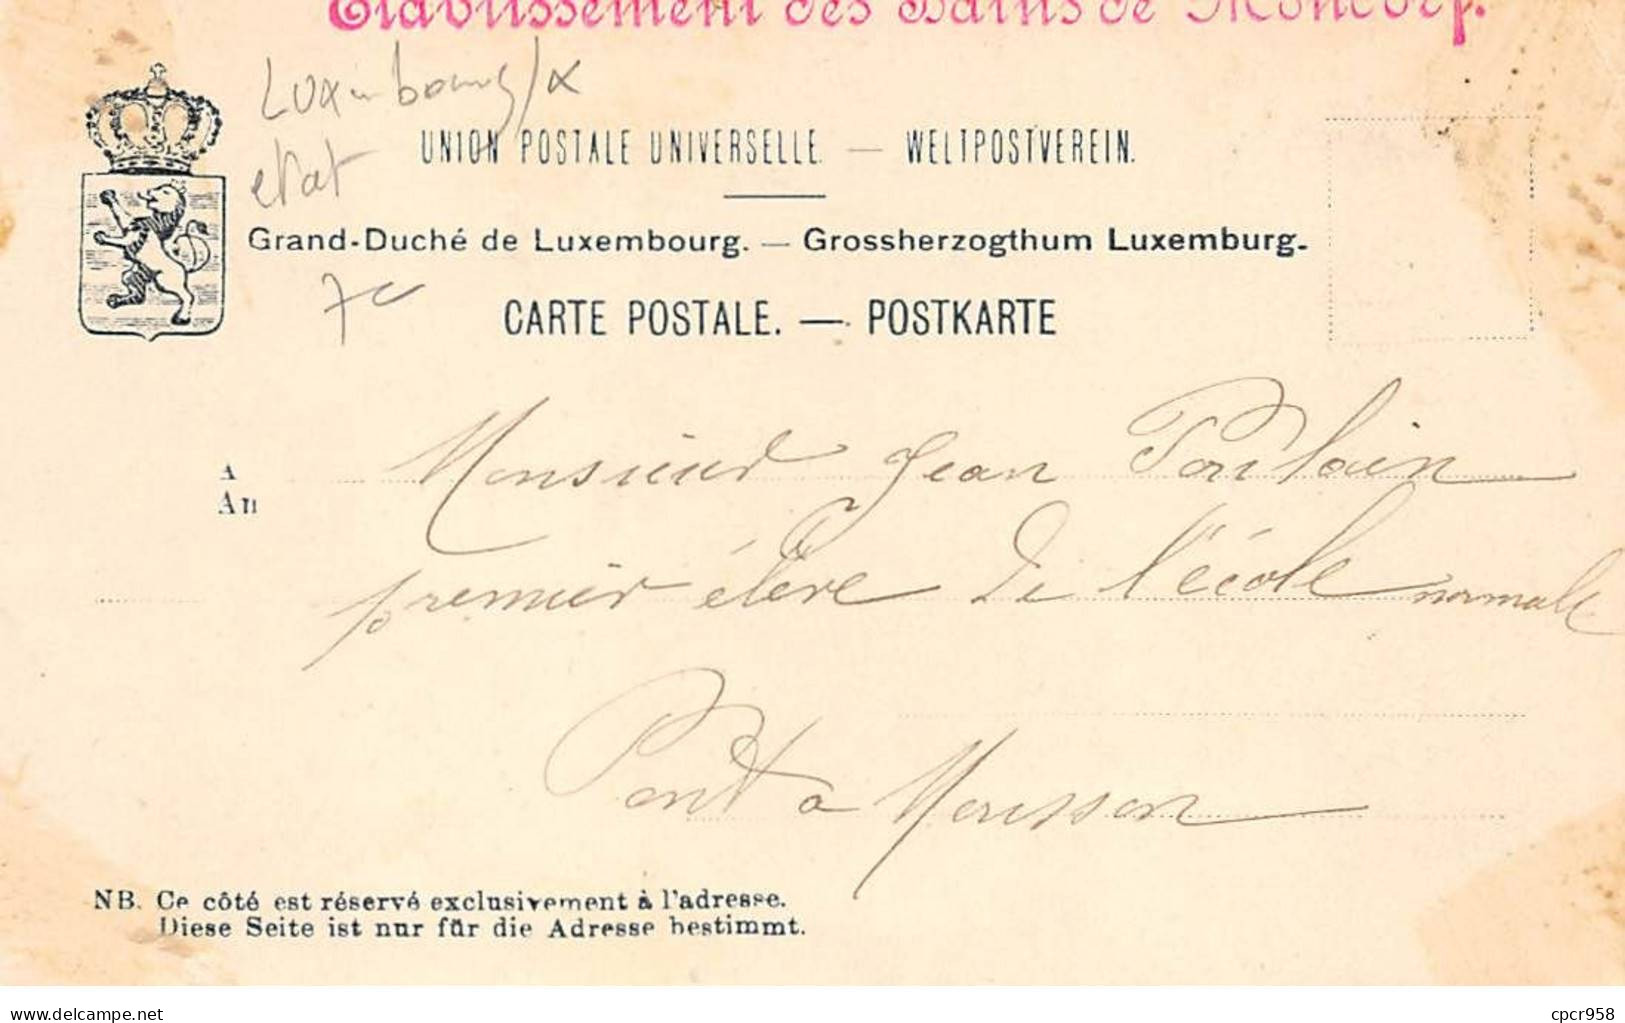 Etablissement des Bains de Mondorf.
Luxembourg/x
etat
UNION POSTALE UNIVERSELLE. — WELTPOSTVEREIN.
Grand-Duché de Luxembourg. — Grossherzogthum Luxemburg.
7c
CARTE POSTALE. — POSTKARTE
A
An
Monsieur Jean Poulain
premier élève de l'école normale
Pont à Mousson
NB. Ce côté est réservé exclusivement à l'adresse.
Diese Seite ist nur für die Adresse bestimmt.
www.delcampe.net
cpcr958